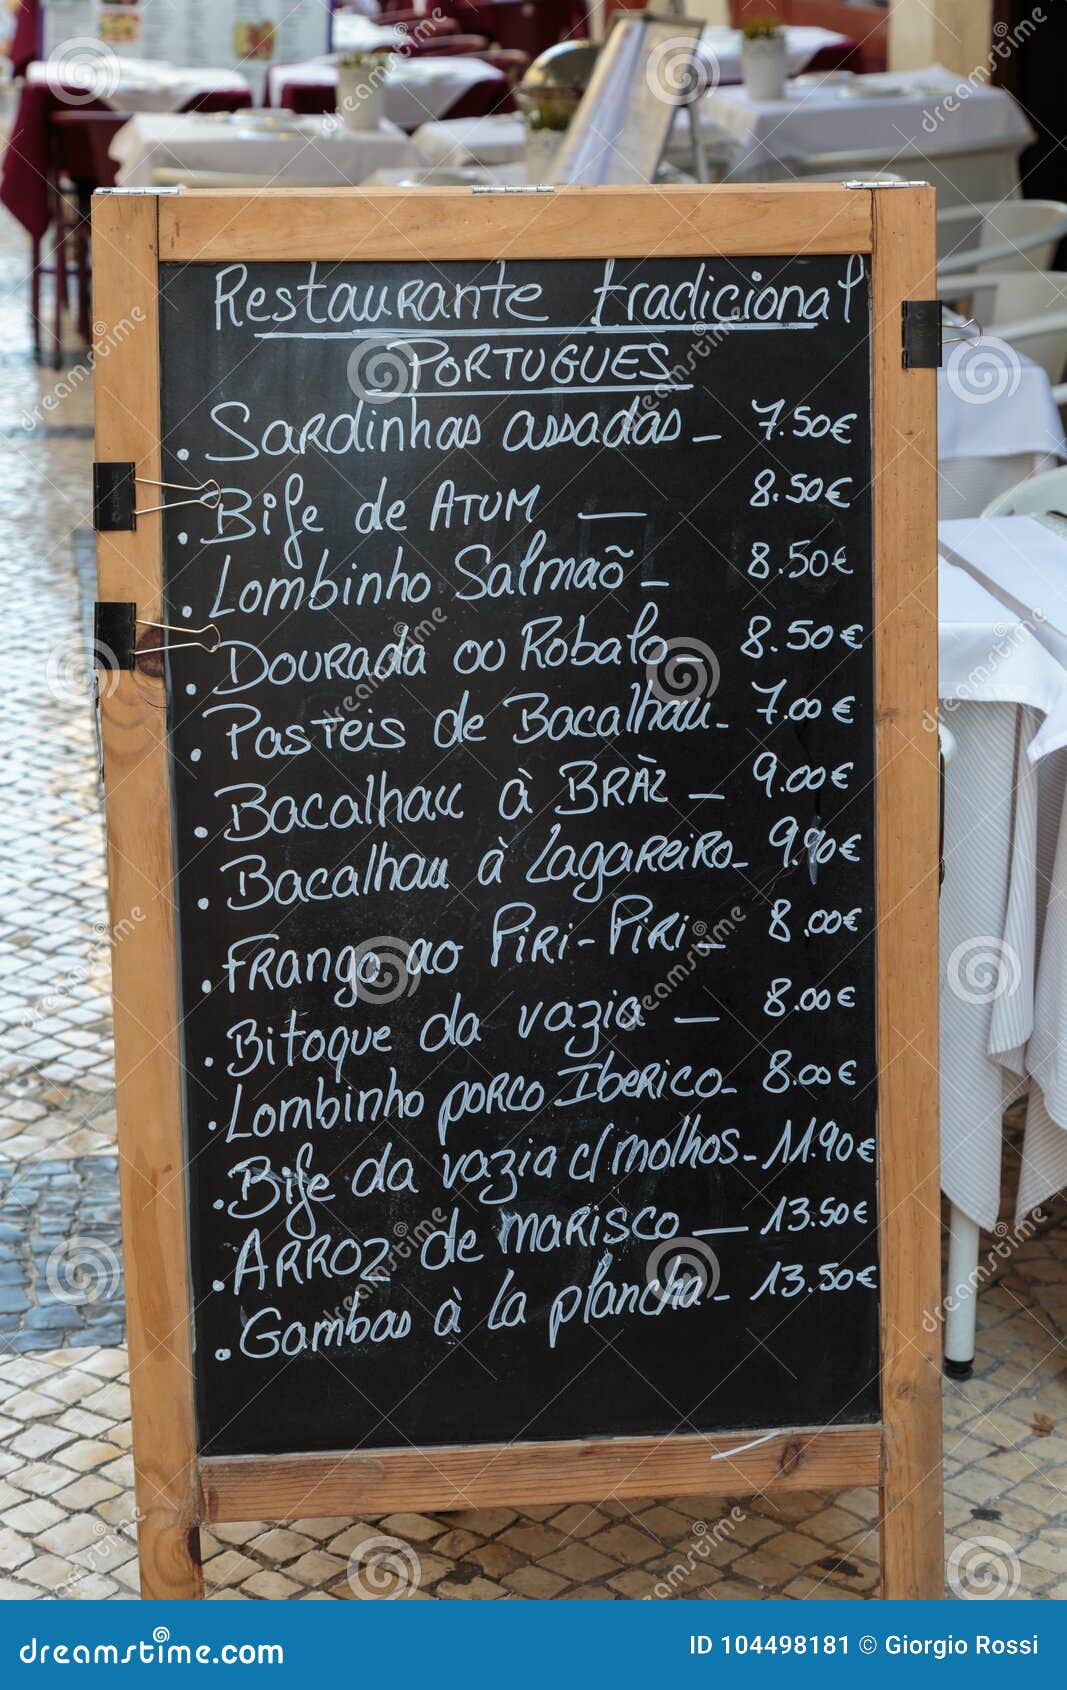 Restaurante tradicional
PORTUGUES
. Sardinhas assadas - 7.50€
. Bife de ATUM — 8.50€
. Lombinho Salmaõ - 8.50€
. DOURADA ou Robalo - 8.50€
. PASTEIS de Bacalhau - 7.00€
. Bacalhau à BRÀZ - 9.00€
. Bacalhau à LAGAREIRO - 9.90€
. FRANGO ao PIRI-PIRI - 8.00€
. Bitoque da vazia — 8.00€
. Lombinho PORCO IBERICO - 8.00€
. Bife da vazia c/ molhos - 11.90€
. ARROZ de MARISCO — 13.50€
. Gambas à la plancha - 13.50€
dreamstime.com
ID 104498181 © Giorgio Rossi